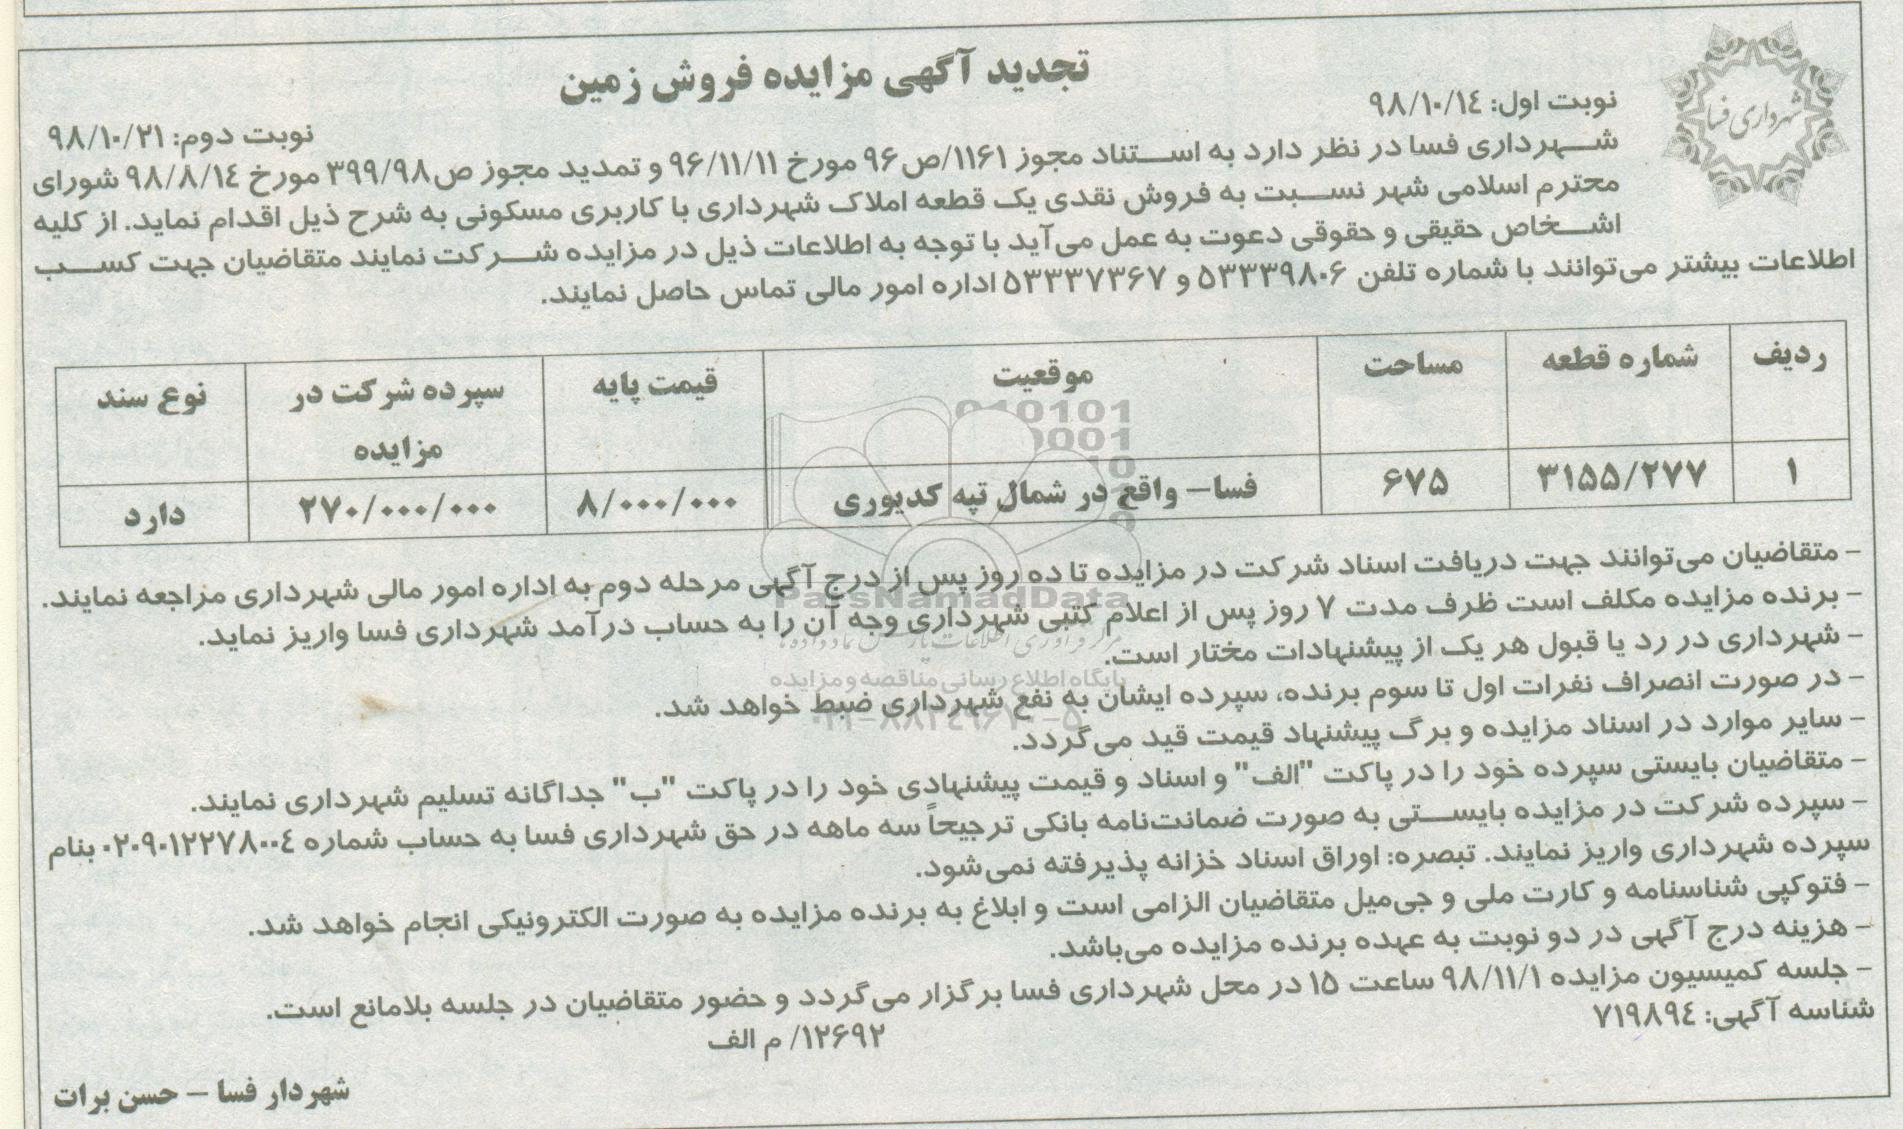 تجدید آگهی مزایده فروش زمین
شهرداری فسا
نوبت اول: ۹۸/۱۰/۱۴
نوبت دوم: ۹۸/۱۰/۲۱
شهرداری فسا در نظر دارد به استناد مجوز ۱۱۶۱/ص۹۶ مورخ ۹۶/۱۱/۱۱ و تمدید مجوز ص۳۹۹/۹۸ مورخ ۹۸/۸/۱۴ شورای
محترم اسلامی شهر نسبت به فروش نقدی یک قطعه املاک شهرداری با کاربری مسکونی به شرح ذیل اقدام نماید. از کلیه
اشخاص حقیقی و حقوقی دعوت به عمل می‌آید با توجه به اطلاعات ذیل در مزایده شرکت نمایند متقاضیان جهت کسب
اطلاعات بیشتر می‌توانند با شماره تلفن ۵۳۳۳۹۸۰۶ و ۵۳۳۳۷۳۶۷ اداره امور مالی تماس حاصل نمایند.
ردیف شماره قطعه مساحت موقعیت قیمت پایه سپرده شرکت در مزایده نوع سند
۱ ۳۱۵۵/۲۷۷ ۶۷۵ فسا- واقع در شمال تپه کدیوری ۸/۰۰۰/۰۰۰ ۲۷۰/۰۰۰/۰۰۰ دارد
- متقاضیان می‌توانند جهت دریافت اسناد شرکت در مزایده تا ده روز پس از درج آگهی مرحله دوم به اداره امور مالی شهرداری مراجعه نمایند.
- برنده مزایده مکلف است ظرف مدت ۷ روز پس از اعلام کتبی شهرداری وجه آن را به حساب درآمد شهرداری فسا واریز نماید.
- شهرداری در رد یا قبول هر یک از پیشنهادات مختار است.
- در صورت انصراف نفرات اول تا سوم برنده، سپرده ایشان به نفع شهرداری ضبط خواهد شد.
- سایر موارد در اسناد مزایده و برگ پیشنهاد قیمت قید می‌گردد.
- متقاضیان بایستی سپرده خود را در پاکت "الف" و اسناد و قیمت پیشنهادی خود را در پاکت "ب" جداگانه تسلیم شهرداری نمایند.
- سپرده شرکت در مزایده بایستی به صورت ضمانت‌نامه بانکی ترجیحاً سه ماهه در حق شهرداری فسا به حساب شماره ۰۲۰۹۰۱۲۲۷۸۰۰۴ بنام
سپرده شهرداری واریز نمایند. تبصره: اوراق اسناد خزانه پذیرفته نمی‌شود.
- فتوکپی شناسنامه و کارت ملی و جی‌میل متقاضیان الزامی است و ابلاغ به برنده مزایده به صورت الکترونیکی انجام خواهد شد.
- هزینه درج آگهی در دو نوبت به عهده برنده مزایده می‌باشد.
- جلسه کمیسیون مزایده ۹۸/۱۱/۱ ساعت ۱۵ در محل شهرداری فسا برگزار می‌گردد و حضور متقاضیان در جلسه بلامانع است.
شناسه آگهی: ۷۱۹۸۹۴
۱۲۶۹۲/ م الف
شهردار فسا - حسن برات
ParsNamadData
پایگاه اطلاع رسانی مناقصه و مزایده